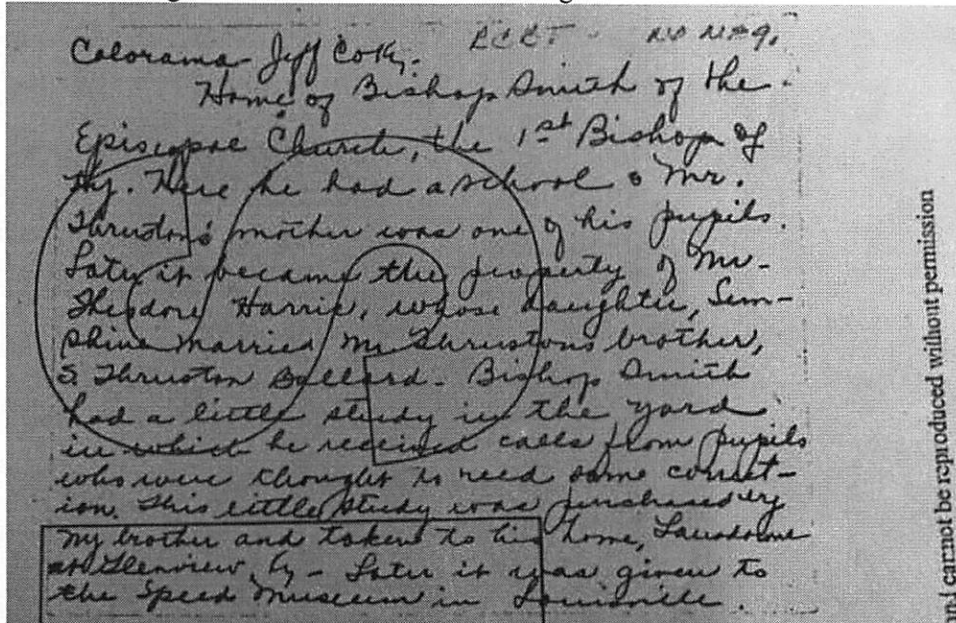 Calorama - Jeff Co Ky.
Home of Bishop Smith of the
Episcopal Church, the 1st Bishop of
Ky. Here he had a school & Mr.
Thruston's mother was one of his pupils.
Later it became the property of Mr.
Theodore Harris, whose daughter, Sun-
shine married Mr Thrustons brother,
S. Thruston Ballard. Bishop Smith
had a little study in the yard
in which he received calls from pupils
who were thought to need some correct-
ion. This little study was purchased by
my brother and taken to his home, Lansdowne
at Glenview, Ky - Later it was given to
the Speed Museum in Louisville.
and cannot be reproduced without permission